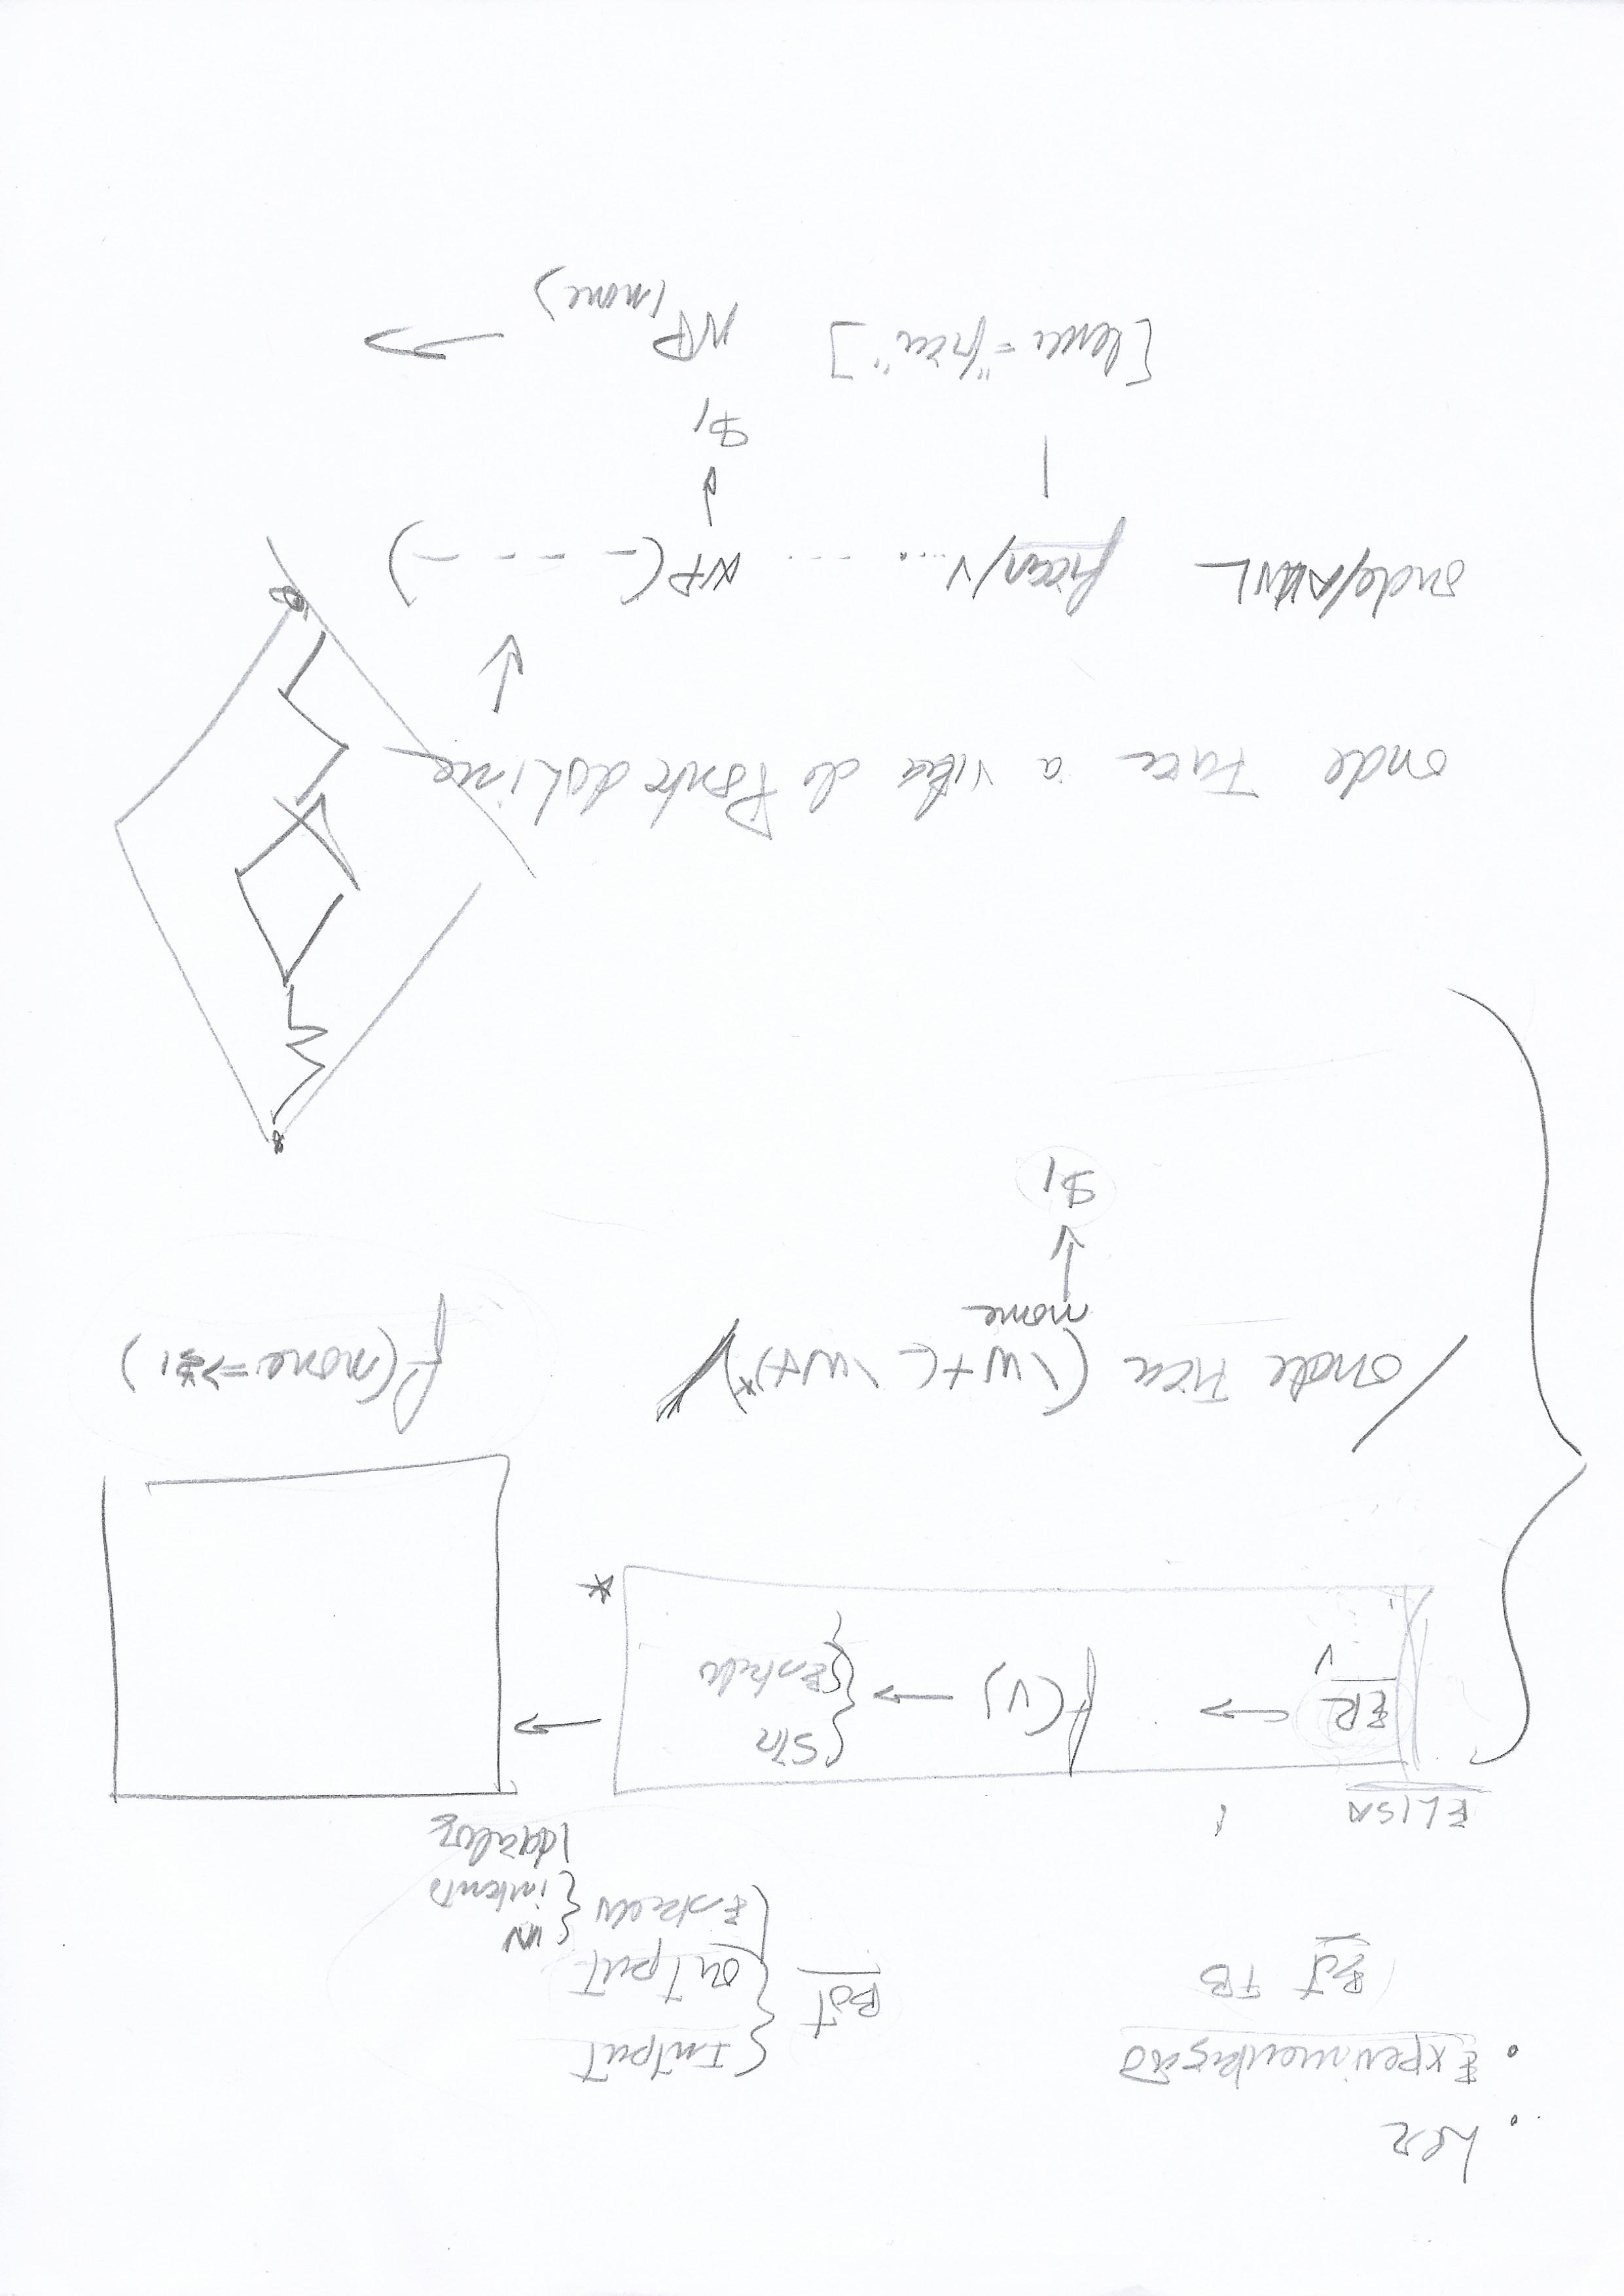 . Ler
. Experimentação
Bot FB
Bot { Intput
output
Estado { IN
intents
ELISA
ER → f(v) → { STR
v { Estado
*
/onde Fica (\w+(_ \w+)*)/
nome
$1
f(nome=>$1)
onde Fica a vila de Ponte do Lima
onde/ ficar/V.... --- NP(_ _ _ _)
$1
[leme="fica"] NP(nome) →